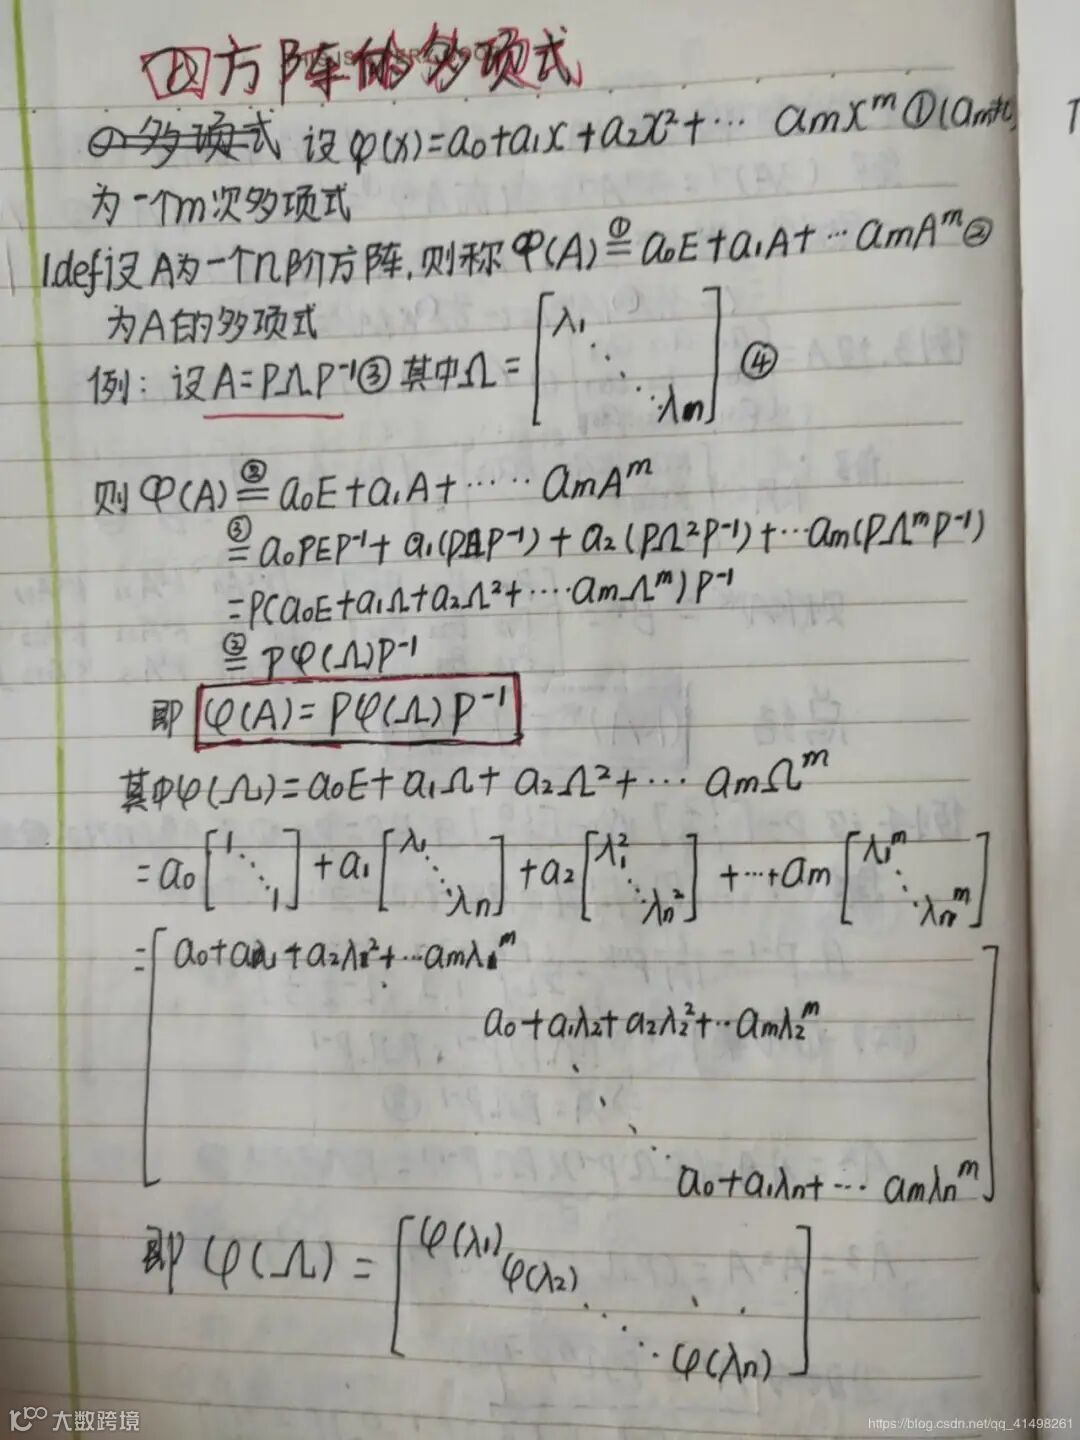 四方阵的多项式
①多项式 设φ(x)=a₀+a₁x+a₂x²+⋯ aₘxᵐ ①(aₘ≠0)
为一个m次多项式
1.def设A为一个n阶方阵,则称φ(A)≝①a₀E+a₁A+⋯aₘAᵐ②
为A的多项式
例:设A=PΩP⁻¹③其中Ω=[λ₁ ⋱ λₙ] ④
则φ(A)=②a₀E+a₁A+⋯⋯aₘAᵐ
=③a₀PEP⁻¹+a₁(PΩP⁻¹)+a₂(PΩ²P⁻¹)+⋯aₘ(PΩᵐP⁻¹)
=P(a₀E+a₁Ω+a₂Ω²+⋯⋯aₘΩᵐ)P⁻¹
=②Pφ(Ω)P⁻¹
即 φ(A)=Pφ(Ω)P⁻¹
其中φ(Ω)=a₀E+a₁Ω+a₂Ω²+⋯aₘΩᵐ
=a₀[1 ⋱ 1]+a₁[λ₁ ⋱ λₙ]+a₂[λ₁² ⋱ λₙ²]+⋯+aₘ[λ₁ᵐ ⋱ λₙᵐ]
=[a₀+a₁λ₁+a₂λ₁²+⋯aₘλ₁ᵐ
a₀+a₁λ₂+a₂λ₂²+⋯aₘλ₂ᵐ
⋱
a₀+a₁λₙ+⋯aₘλₙᵐ]
即φ(Ω)=[φ(λ₁)
φ(λ₂)
⋱
φ(λₙ)]
大数跨境
https://blog.csdn.net/qq_41498261